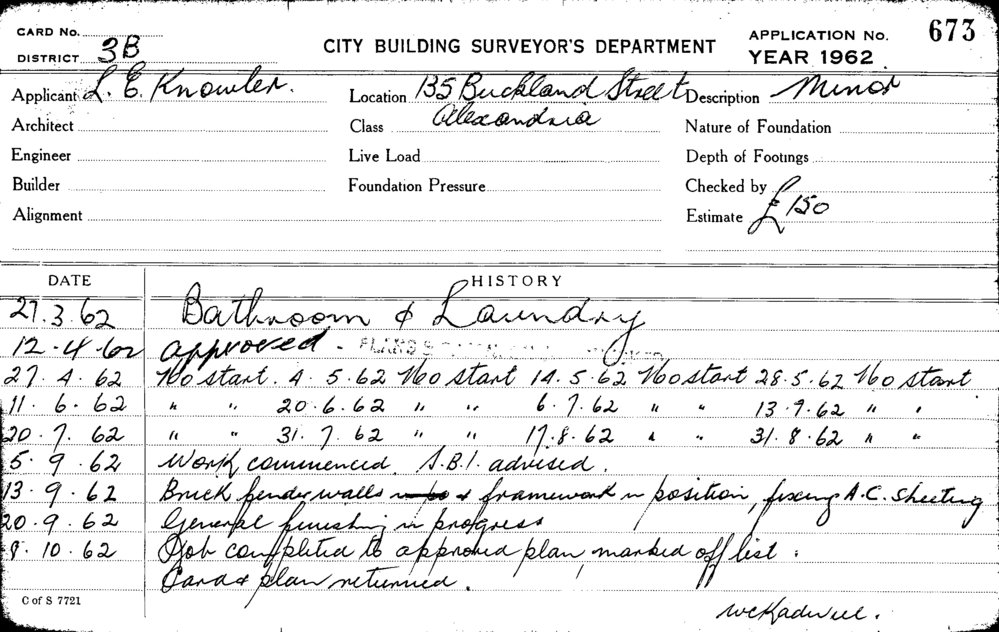 CARD No.
DISTRICT 3B
CITY BUILDING SURVEYOR'S DEPARTMENT
APPLICATION No. 673
YEAR 1962
Applicant L. E. Knowler. Location 135 Buckland Street Description Minor
Alexandria
Architect Class Nature of Foundation
Engineer Live Load Depth of Footings
Builder Foundation Pressure Checked by
Alignment Estimate £150
DATE HISTORY
27.3.62 Bathroom & Laundry
12.4.62 approved. PLANS
27.4.62 No start. 4.5.62 No start 14.5.62 No start 28.5.62 No start
11.6.62 " " 20.6.62 " " 6.7.62 " " 13.7.62 " "
20.7.62 " " 31.7.62 " " 17.8.62 " " 31.8.62 " "
5.9.62 Work commenced. S.B.I. advised.
13.9.62 Brick fender walls & framework in position, fixing A.C. sheeting
20.9.62 General finishing in progress
9.10.62 Job completed to approved plan, marked off list.
Card & plan returned.
C of S 7721